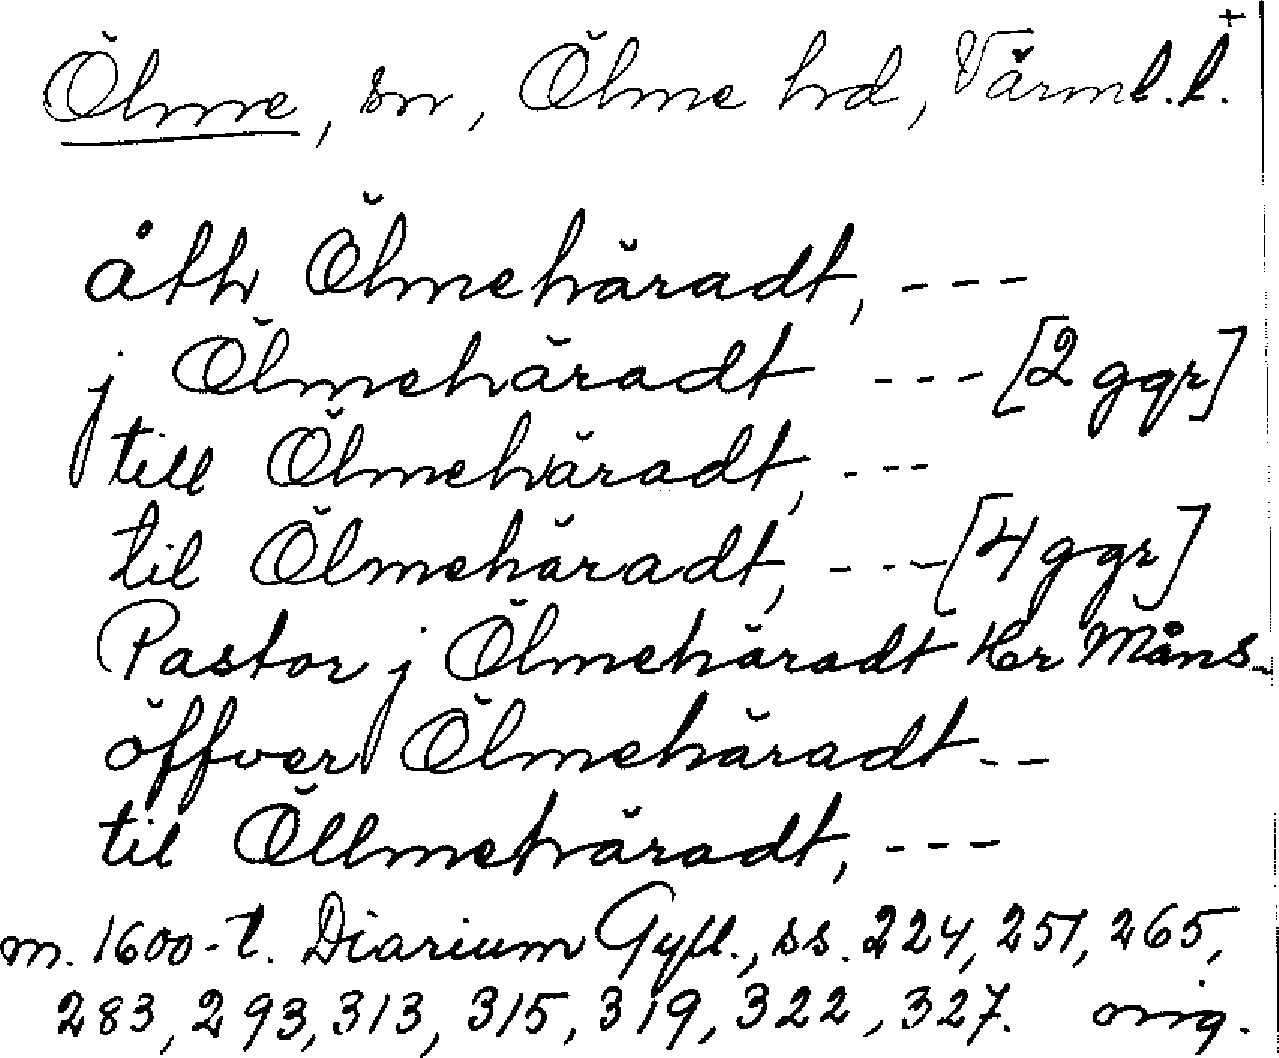 Ölme, sn, Ölme hd, Värml.l.+
åth Ölmehäradt, ---
j Ölmehäradt --- [2 ggr]
till Ölmehäradt, ---
til Ölmehäradt, --- [4 ggr]
Pastor j Ölmehäradt Her Måns-
öffver Ölmehäradt --
til Öllmehäradt, ---
m. 1600-t. Diarium Gyll., ss. 224, 251, 265,
283, 293, 313, 315, 319, 322, 327. orig.